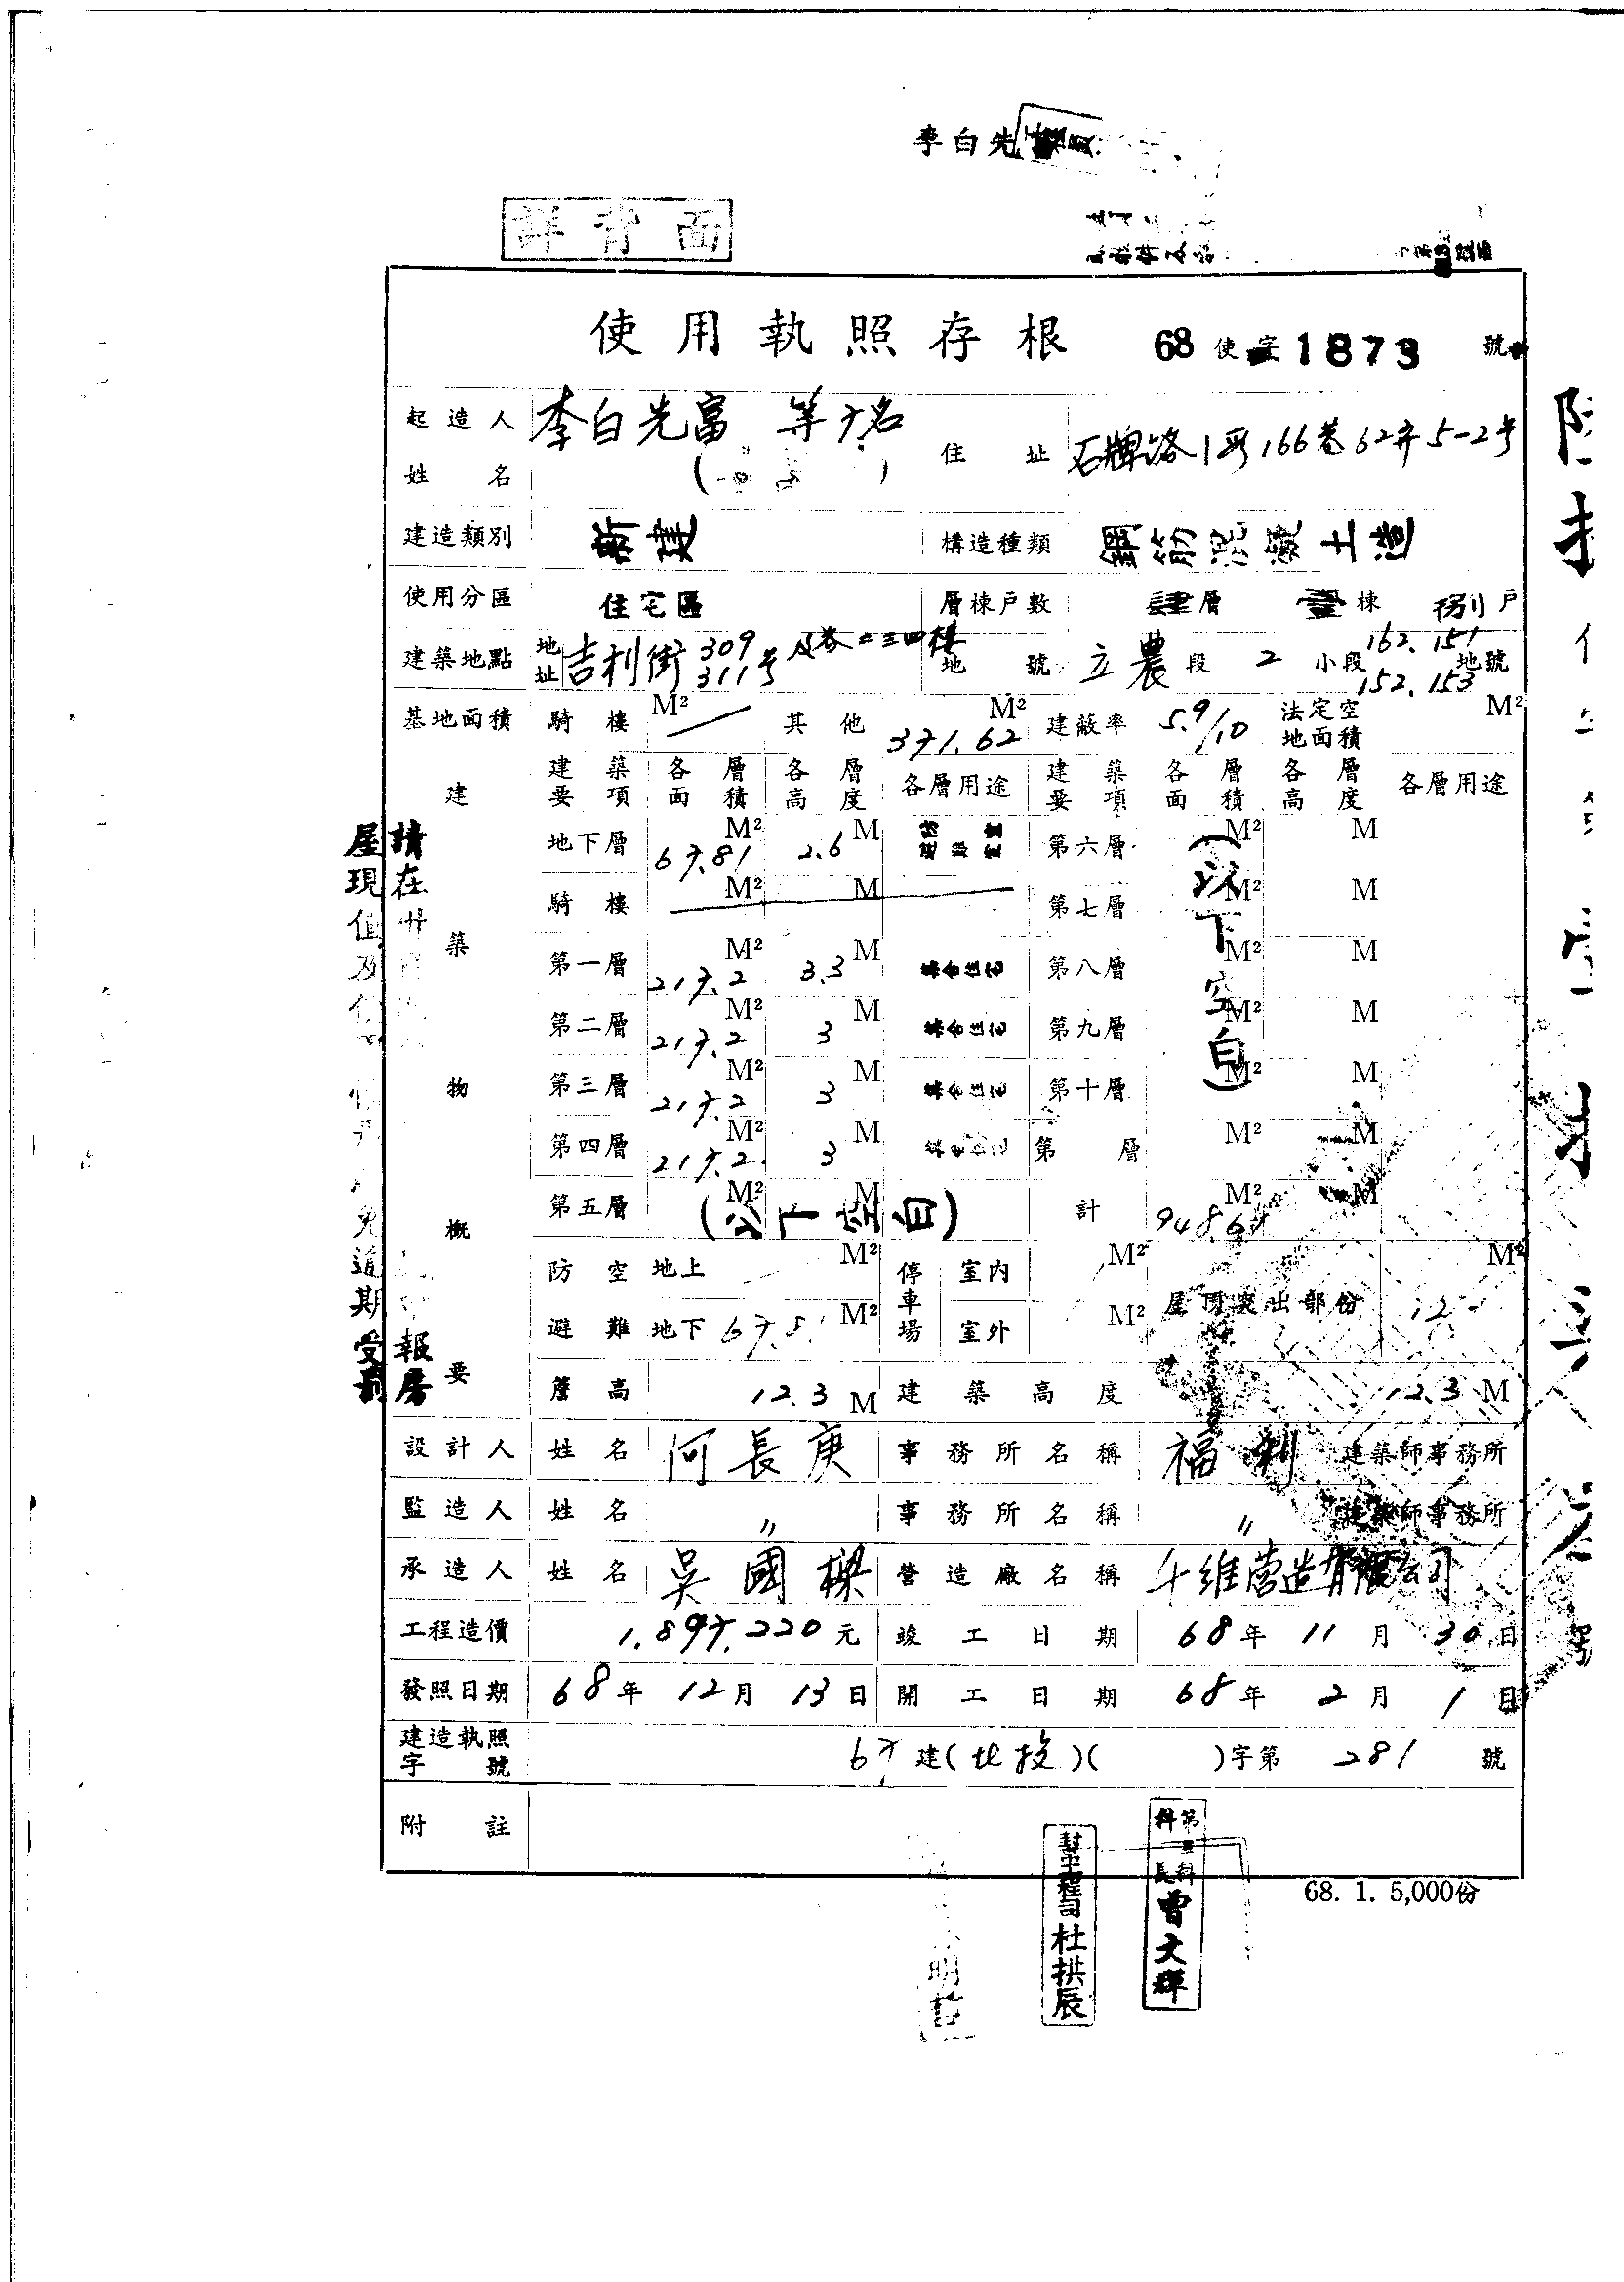 李白先
詳背面
使用執照存根 68使字1873號
起造人姓名 李白光富 等7名 住址 石牌路1段166巷62弄5-2号
建造類別 新建 構造種類 鋼筋混凝土造
使用分區 住宅區 層棟戶數 肆層 壹棟 捌戶
建築地點 地址 吉利街309 311号及各二三四樓 地號 立農段2小段162.151 152.153地號
基地面積 騎樓 M² 其他 371.62 M² 建蔽率 5.9/10 法定空地面積 M²
建築物概要
建築要項 各層面積 各層高度 各層用途 建築要項 各層面積 各層高度 各層用途
地下層 67.81 M² 2.6 M 第六層 M² M
騎樓 M² M 第七層 M² M
第一層 217.2 M² 3.3 M 集合住宅 第八層 M² M
第二層 217.2 M² 3 M 集合住宅 第九層 M² M
第三層 217.2 M² 3 M 集合住宅 第十層 M² M
第四層 217.2 M² 3 M 集合住宅 第 層 M² M
第五層 M² M (以下空白) 計 948.67 M² M
(以下空白)
防空避難 地上 M² 停車場 室內 M² 屋頂突出部份 12 M²
地下 M² 室外 M²
簷高 12.3 M 建築高度 12.3 M
設計人 姓名 何長庚 事務所名稱 福利 建築師事務所
監造人 姓名 〃 事務所名稱 〃 建築師事務所
承造人 姓名 吳國樑 營造廠名稱 維营造有限公司
工程造價 1.897.220元 竣工日期 68年11月30日
發照日期 68年12月13日 開工日期 68年2月1日
建造執照字號 67建(北投)( )字第281號
附註
68. 1. 5,000份
請在
屋現值及
免逾期
受 報
房
幫工程司 杜拱辰
第三科科長 曾文輝
明